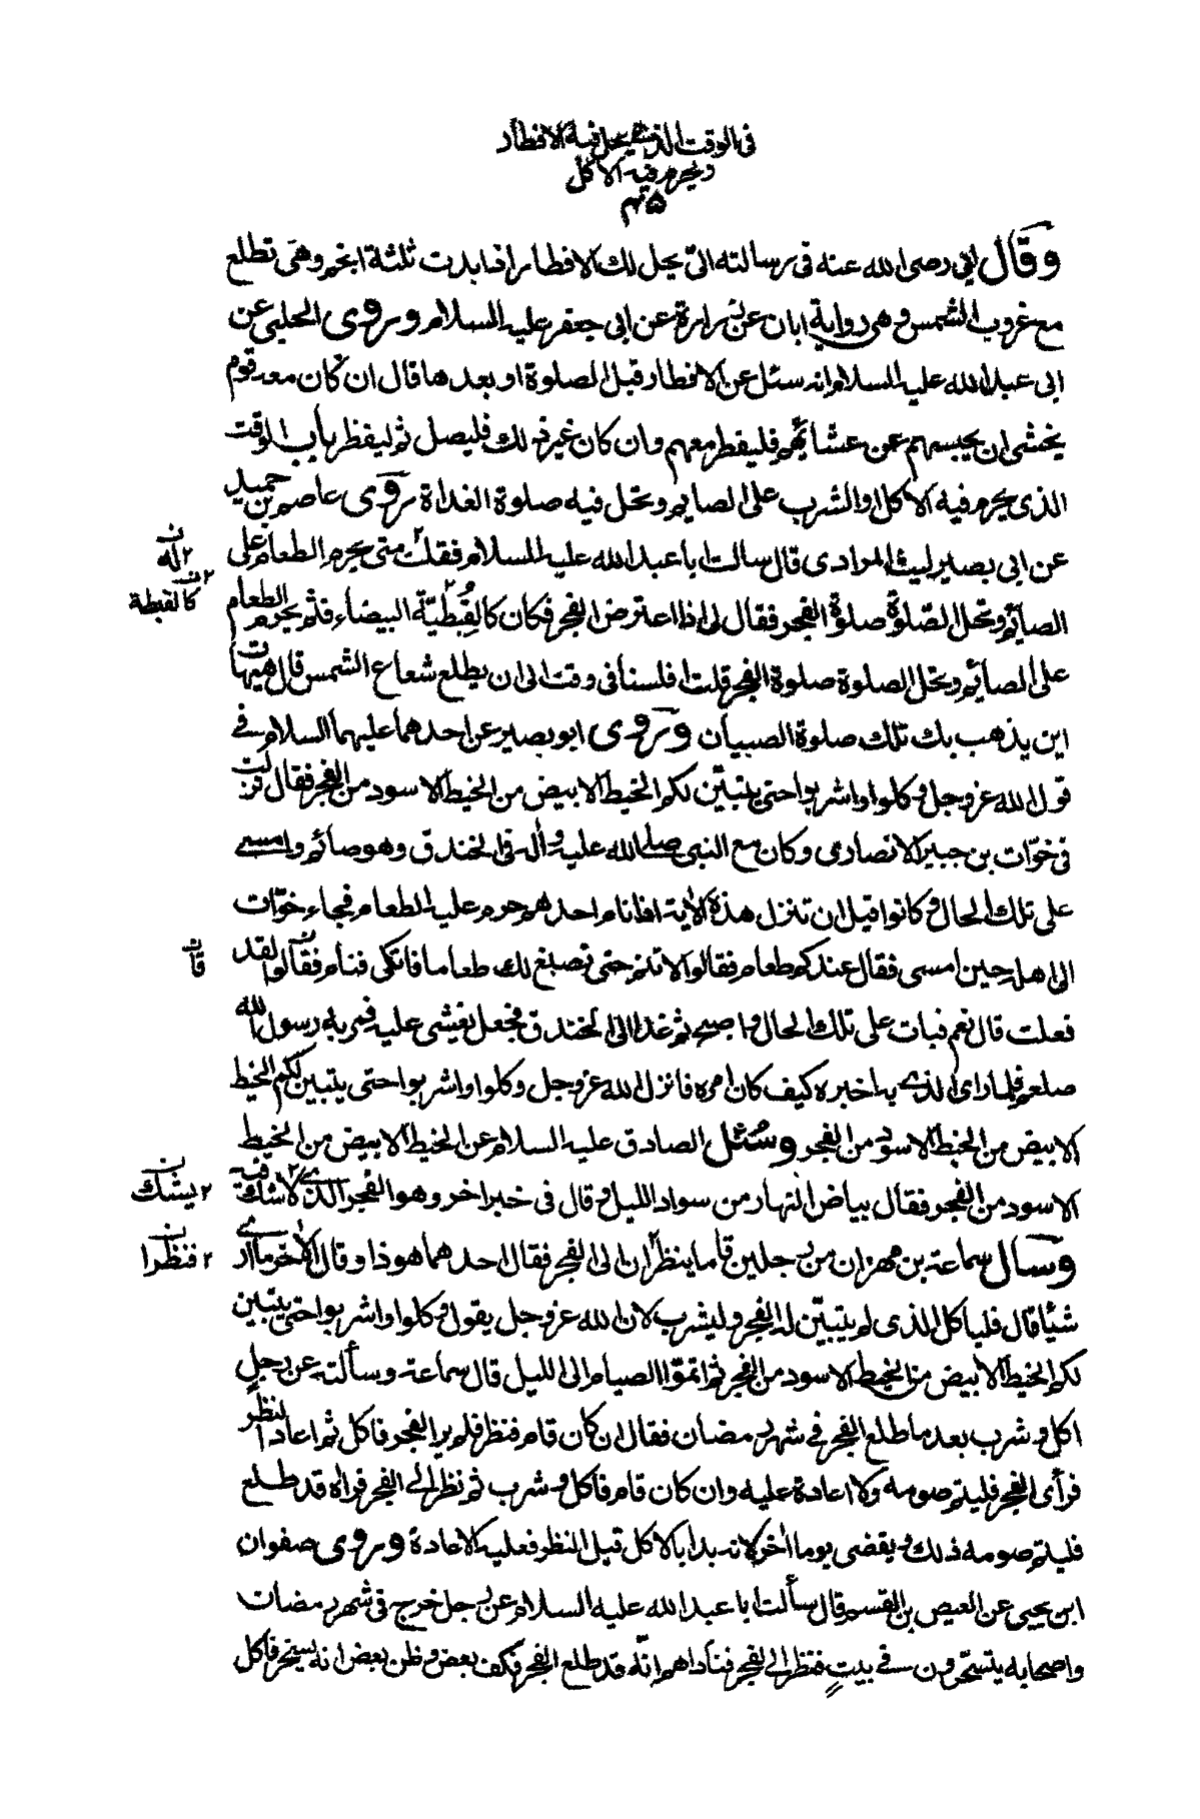 فى الوقت الذى يحل فيه الافطار
و يحرم فيه الاكل
وقال ابى رضى الله عنه فى رسالته الىّ يحل لك الافطار اذا بدت ثلثة انجم وهى تطلع
مع غروب الشمس وهى رواية ابان عن زرارة عن ابى جعفر عليه السلام وروى الحلبى عن
ابى عبد الله عليه السلام انه سئل عن الافطار قبل الصلوة او بعدها قال ان كان معه قوم
يخشى ان يحبسهم عن عشائهم فليفطر معهم وان كان غير ذلك فليصل ثم ليفطر باب الوقت
الذى يحرم فيه الاكل والشرب على الصايم وتحل فيه صلوة الغداة روى عاصم بن حميد
عن ابى بصير ليث المرادى قال سالت ابا عبد الله عليه السلام فقلت متى يحرم الطعام على
الصائم وتحل الصّلوة صلوة الفجر فقال لى اذا اعترض الفجر فكان كالقبطيّة البيضاء فثم يحرم الطعام
على الصائم وتحل الصلوة صلوة الفجر قلت افلسنا فى وقت الى ان يطلع شعاع الشمس قال هيهات
اين يذهب بك تلك صلوة الصبيان وروى ابو بصير عن احدهما عليهما السلام فى
قول الله عز وجل وكلوا واشربوا حتى يتبيّن لكم الخيط الابيض من الخيط الاسود من الفجر فقال نزلت
فى خوّات بن جبير الانصارى وكان مع النبى صلى الله عليه وآله فى الخندق وهو صائم وامسى
على تلك الحال وكانوا قبل ان تنزل هذه الآية اذا نام احدهم حرم عليه الطعام فجاء خوّات
الى اهله حين امسى فقال عندكم طعام فقالوا لا تنم حتى نصنع لك طعاما فاتكى فنام فقالوا لقد
فعلت قال نعم فبات على تلك الحال واصبح ثم غدا الى الخندق فجعل يغشى عليه فمر به رسول الله
صلعم فلما راى الذى به اخبره كيف كان امره فانزل الله عز وجل وكلوا واشربوا حتى يتبين لكم الخيط
الابيض من الخيط الاسود من الفجر وسئل الصادق عليه السلام عن الخيط الابيض من الخيط
الاسود من الفجر فقال بياض النهار من سواد الليل وقال فى خبر اخر وهو الفجر الذى لا شك فيه
وسال سماعة بن مهران من رجلين قاما ينظران الى الفجر فقال احدهما هو ذا وقال الآخر ما ارى
شيئا قال فلياكل الذى لم يتبيّن له الفجر وليشرب لان الله عز وجل يقول وكلوا واشربوا حتى يتبين
لكم الخيط الابيض من الخيط الاسود من الفجر ثم اتمّوا الصيام الى الليل قال سماعة وسألته عن رجل
اكل وشرب بعد ما طلع الفجر فى شهر رمضان فقال ان كان قام فنظر فلم ير الفجر فاكل ثم اعاد النظر
فرأى الفجر فليتم صومه ولا اعادة عليه وان كان قام فاكل وشرب ثم نظر الى الفجر فراه قد طلع
فليتم صومه ذلك ويقضى يوما اخر لانه بدا بالاكل قبل النظر فعليه الاعادة وروى صفوان
ابن يحيى عن العيص بن القسم قال سألت ابا عبد الله عليه السلام عن رجل خرج فى شهر رمضان
واصحابه يتسحّرون فى بيت فنظر الى الفجر فناداهم انّه قد طلع الفجر فكف بعض وظن بعض انه يسخر فاكل
له
كالقبطة
قال
يشك
فنظرا